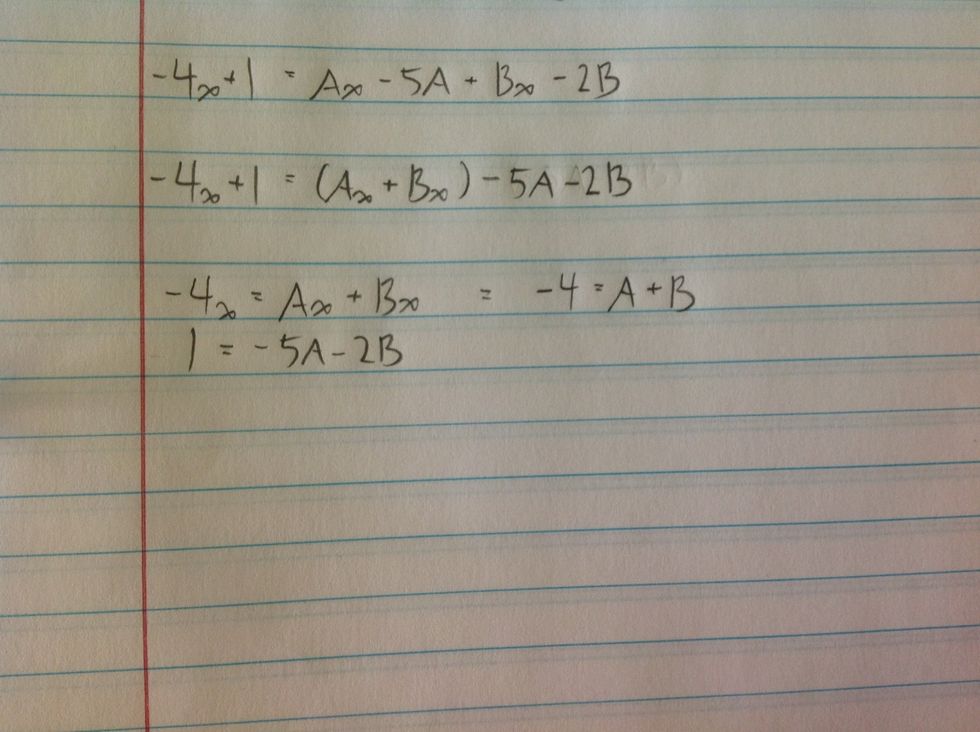 -4x+1 = Ax - 5A + Bx - 2B
-4x+1 = (Ax + Bx) - 5A - 2B
-4x = Ax + Bx = -4 = A + B
1 = -5A - 2B